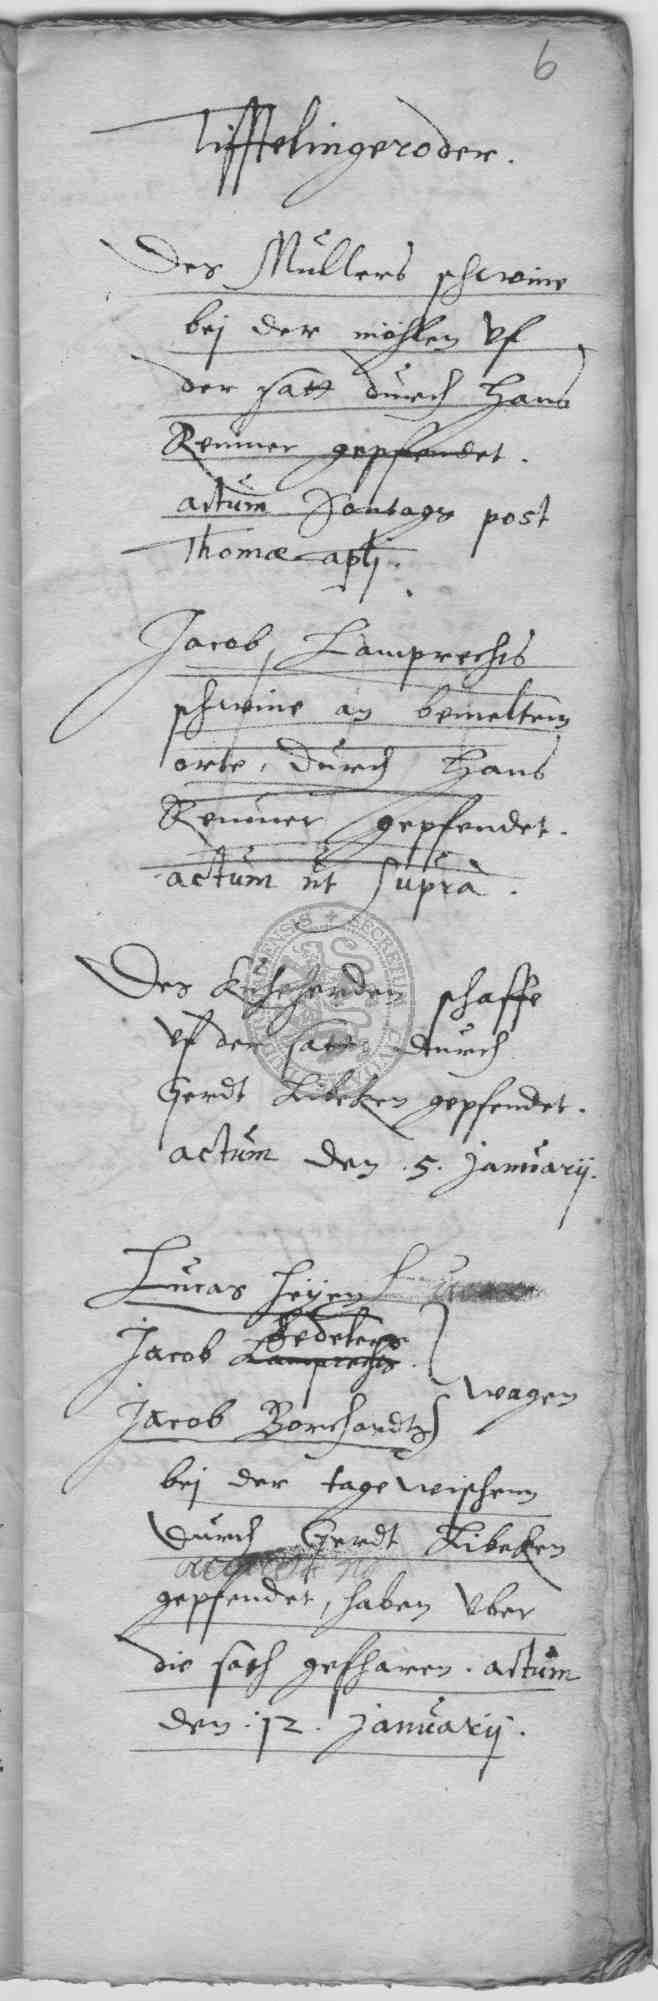 6
Tifftelingeroder.
Des Müllers schweine
bej der möhlen vf
der satt durch Hans
Remmer gepfendet.
actum Sontags post
Thomae aplj.
Jacob Lamprechts
schweine an bemeltem
orte, durch Hans
Remmer gepfendet.
actum ut supra.
Des Kuheherden schaffe
vf der satt durch
Gerdt Libeken gepfendet.
actum den .5. januarij.
Lucas Heyen
Jacob Lamprechts.
Jacob Borchardts
wagen
bej der tagewischenn
durch Gerdt Libeken
gepfendet, haben vber
die sath gefharen. actum
den .12. januarij.